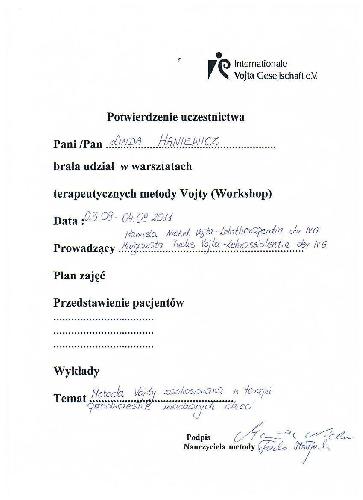 Internationale
Vojta Gesellschaft e.V.
Potwierdzenie uczestnictwa
Pani /Pan LINDA HANIEWICZ
brała udział w warsztatach
terapeutycznych metody Vojty (Workshop)
Data : 03.09 - 04.09.2011
Vojta-Lehrtherapeutin der IVG
Prowadzący Małgorzata Vojta-Lehrassistentin der IVG
Plan zajęć
Przedstawienie pacjentów
Wykłady
Metoda Vojty zastosowana w terapii
Temat
Podpis
Nauczyciela metody